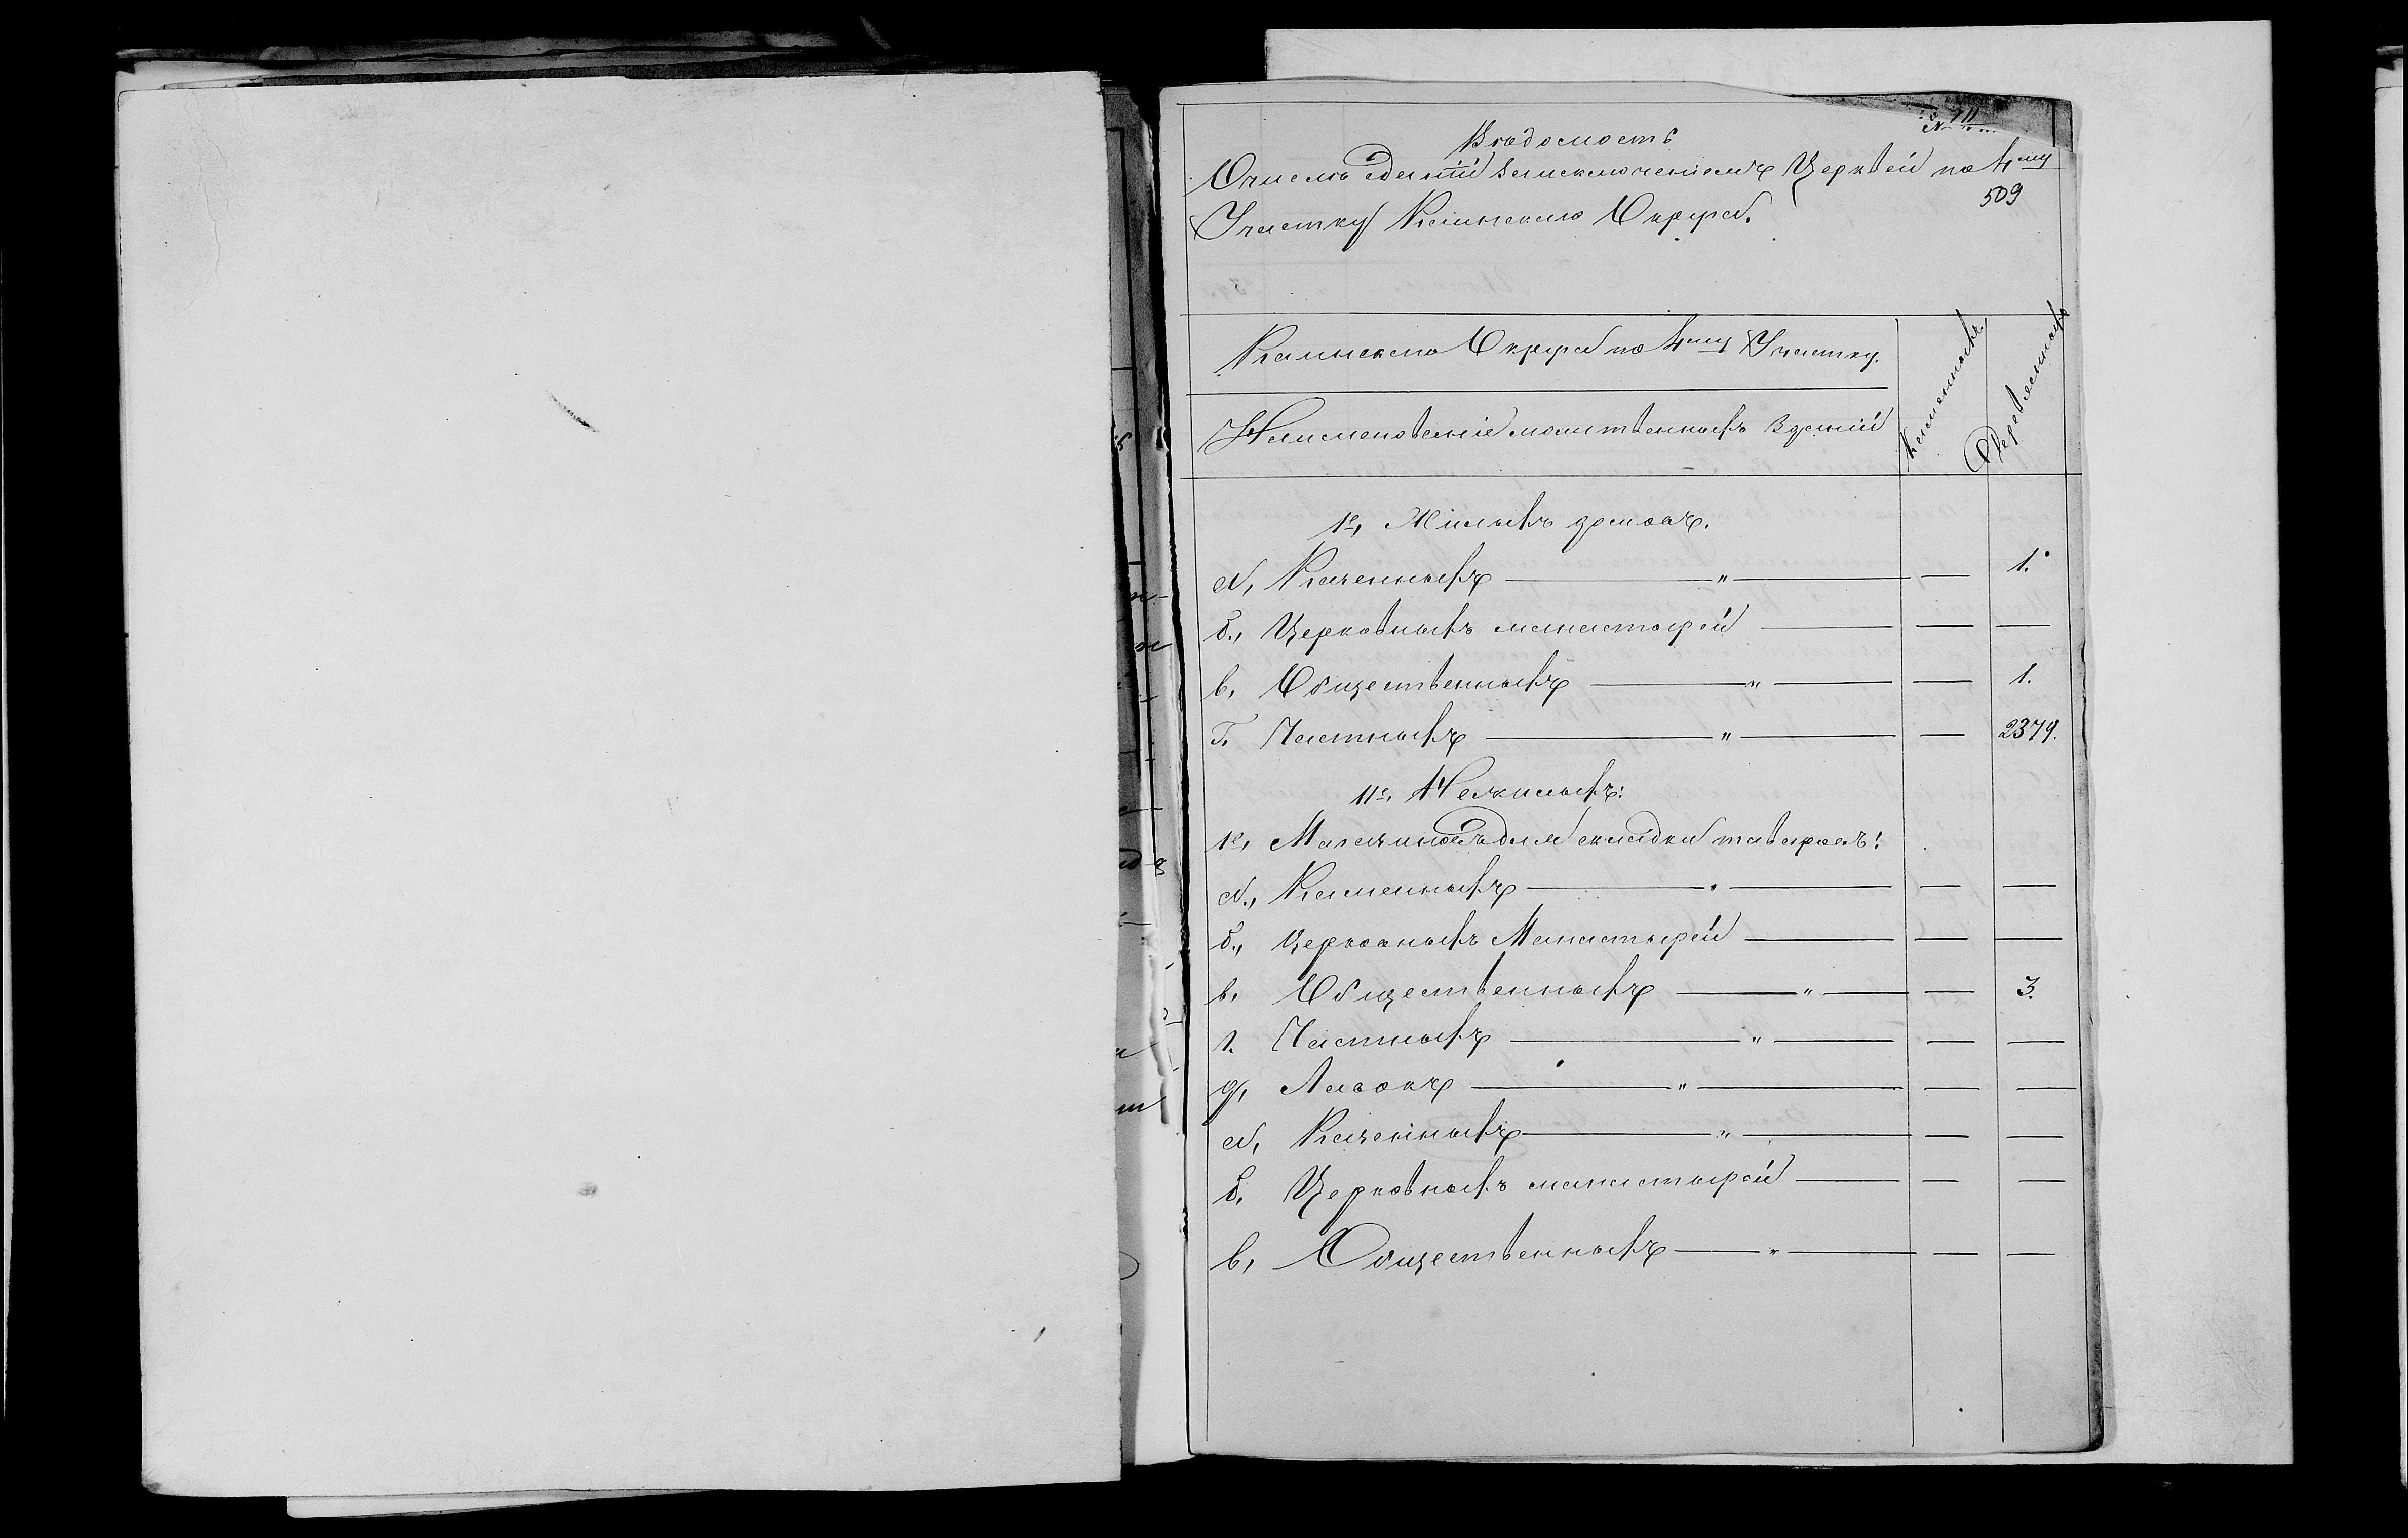 № 711
Вѣдомость
О числѣ зданій заисключеніемъ Церквей по 4му
509
Участку Каинскаго Округа.
Каинскаго Округа по 4му Участку.
Каменныхъ.
Деревянныхъ
Наименованіе молитвенныхъ зданій
1е, Жилыхъ домовъ.
а, Казенныхъ — " — — 1.
б., Церковныхъ манастырей — — —
в. Общественныхъ — " — — 1.
г. Частныхъ — " — — 2379.
11е, Нежилыхъ:
1е, Магазиновъ для складки товаровъ:
а., Каменныхъ — " — — —
б., Церковныхъ Манастырей — — —
в. Общественныхъ — " — — 3.
г. Частныхъ — " — — —
д, Лавокъ — " — — —
а, Казенныхъ — " — — —
б. Церковныхъ манастырей — — —
в, Общественныхъ — " — — —